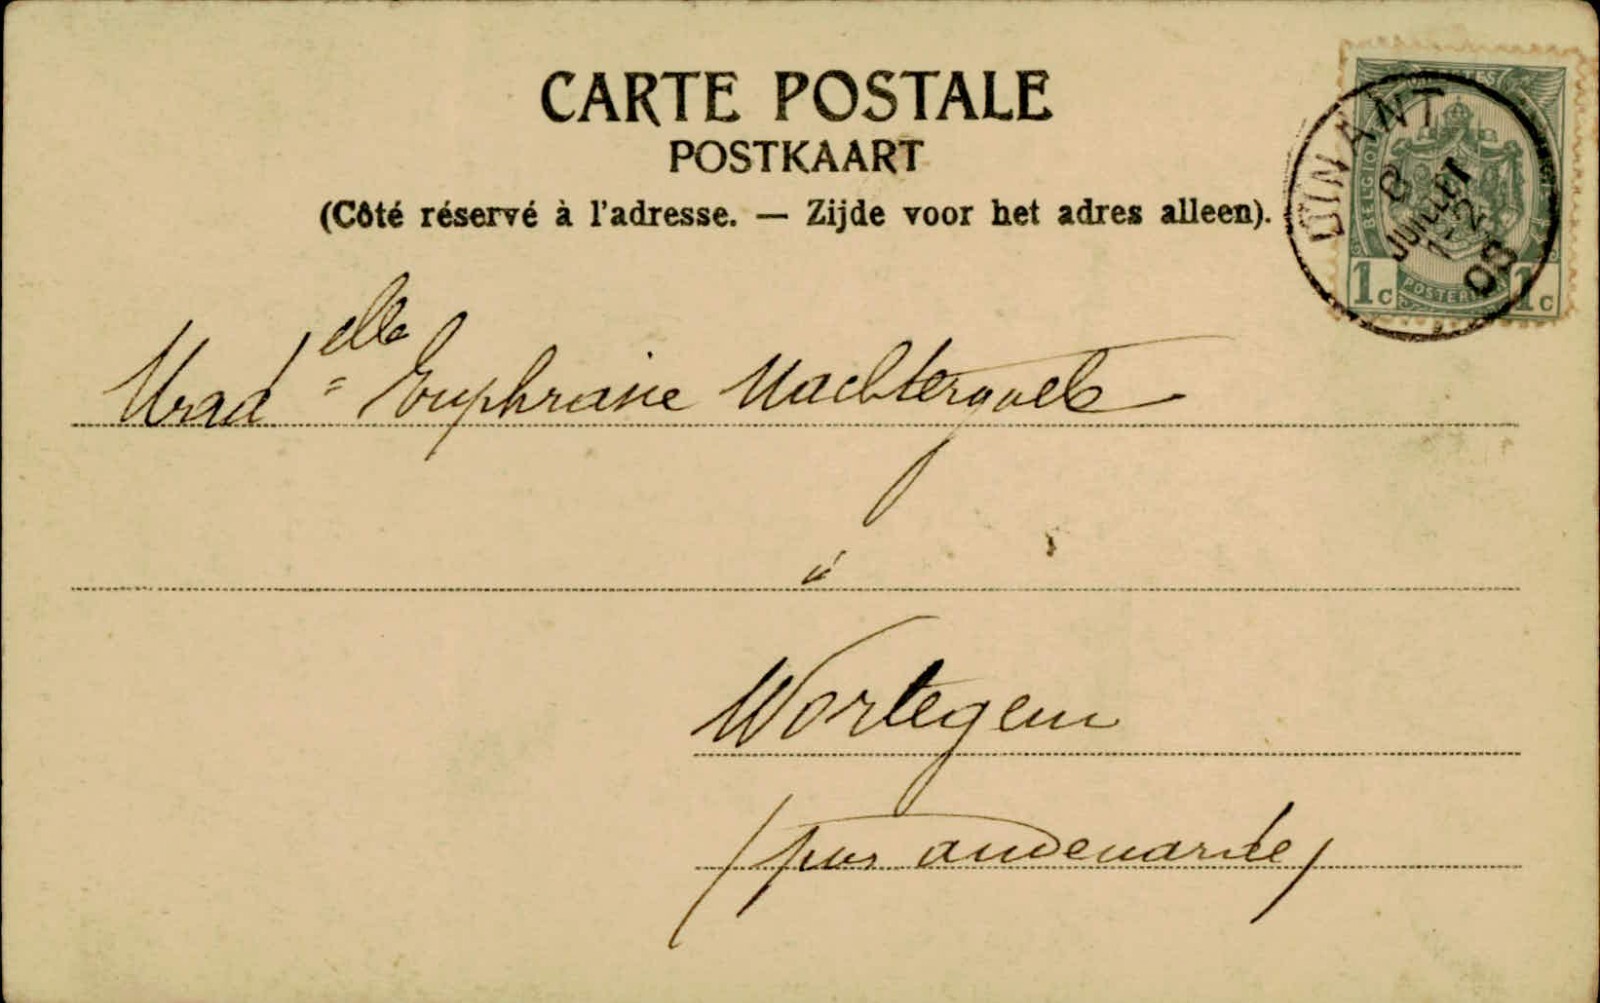 CARTE POSTALE
POSTKAART
(Côté réservé à l'adresse. — Zijde voor het adres alleen).
DINANT
8
JUILLET
12
05
BELGIQUE
1c 1c
Mad elle Euphrasie Nachtergaele
à
Wortegem
(par Audenarde)